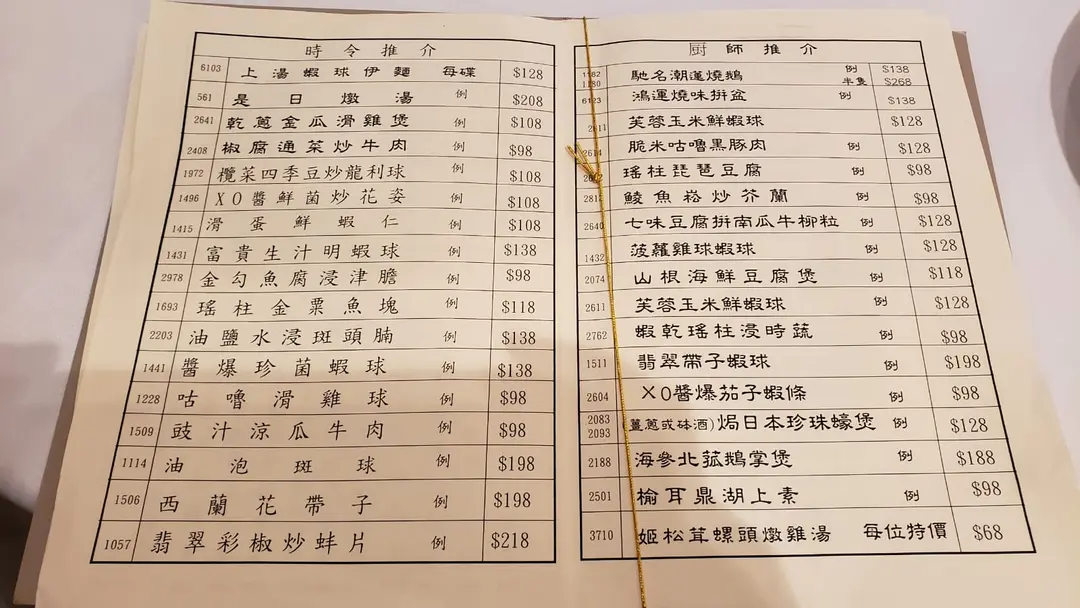 時令推介
6103 上湯蝦球伊麵 每碟 $128
561 是日燉湯 例 $208
2641 乾蔥金瓜滑雞煲 例 $108
2408 椒腐通菜炒牛肉 例 $98
1972 欖菜四季豆炒龍利球 例 $108
1496 XO醬鮮菌炒花姿 例 $108
1415 滑蛋鮮蝦仁 例 $108
1431 富貴生汁明蝦球 例 $138
2978 金勾魚腐浸津膽 例 $98
1693 瑤柱金粟魚塊 例 $118
2203 油鹽水浸斑頭腩 例 $138
1441 醬爆珍菌蝦球 例 $138
1228 咕嚕滑雞球 例 $98
1509 豉汁涼瓜牛肉 例 $98
1114 油泡斑球 例 $198
1506 西蘭花帶子 例 $198
1057 翡翠彩椒炒蚌片 例 $218
厨師推介
1182 馳名潮蓮燒鵝 例 $138
1180 半隻 $268
6123 鴻運燒味拼盆 例 $138
2611 芙蓉玉米鮮蝦球 $128
2614 脆米咕嚕黑豚肉 例 $128
瑤柱琵琶豆腐 例 $98
281 鯪魚崧炒芥蘭 例 $98
2640 七味豆腐拼南瓜牛柳粒 例 $128
1432 菠蘿雞球蝦球 例 $128
2074 山根海鮮豆腐煲 例 $118
2611 芙蓉玉米鮮蝦球 例 $128
2762 蝦乾瑤柱浸時蔬 例 $98
1511 翡翠帶子蝦球 例 $198
2604 XO醬爆茄子蝦條 例 $98
2083 2093 (薑蔥或砵酒)焗日本珍珠蠔煲 例 $128
2188 海參北菰鵝掌煲 例 $188
2501 榆耳鼎湖上素 例 $98
3710 姬松茸螺頭燉雞湯 每位特價 $68